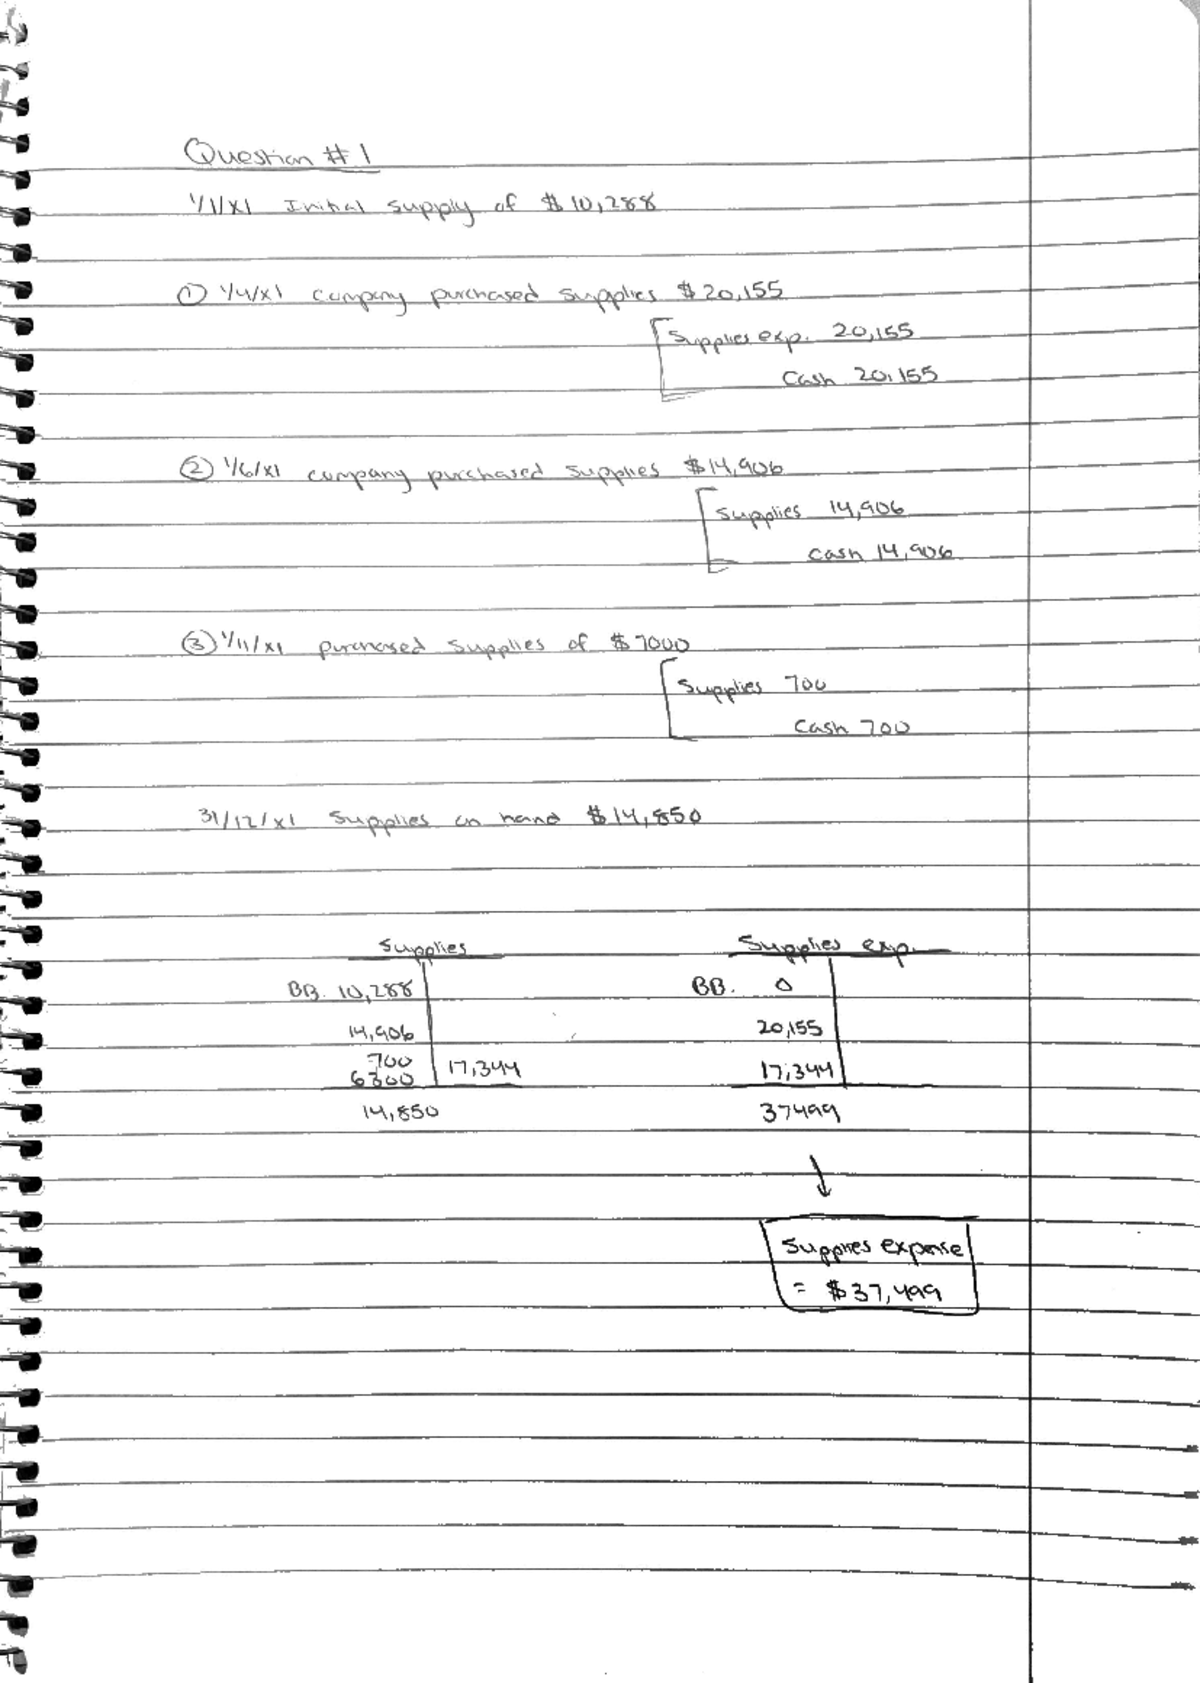 Question #1
1/1/X1 Initial supply of $10,288
① 1/4/X1 company purchased supplies $20,155
Supplies exp. 20,155
Cash 20,155
② 1/6/X1 company purchased supplies $14,906
Supplies 14,906
Cash 14,906
③ 1/11/X1 purchased supplies of $7000
Supplies 700
Cash 700
31/12/X1 Supplies on hand $14,850
Supplies Supplies exp.
BB. 10,288 BB. 0
14,906 20,155
700
6300 17,344 17,344
14,850 37499
Supplies expense
= $37,499